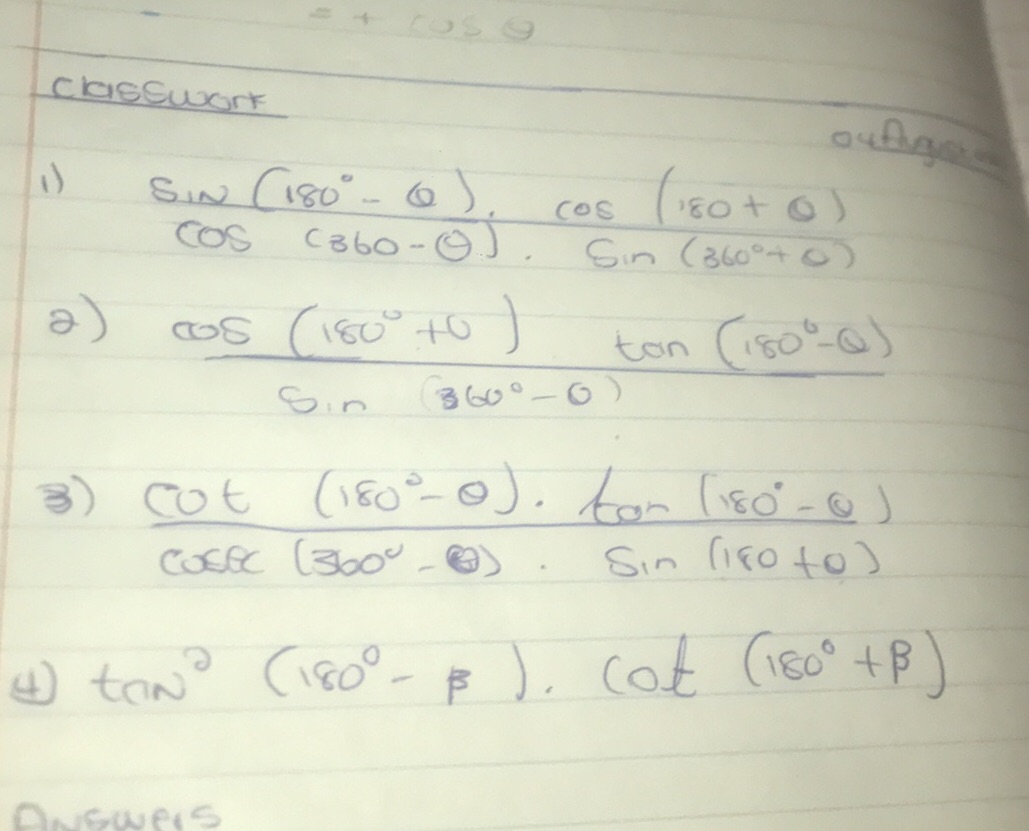 = + cos θ
classwork
04 August
1) SIN (180° - θ). cos (180 + θ)
cos (360 - θ). Sin (360° + θ)
2) cos (180° + θ) tan (180° - θ)
Sin (360° - θ)
3) cot (180° - θ). tan (180° - θ)
cosec (360° - θ). Sin (180 + θ)
4) tan² (180° - β). cot (180° + β)
Answers